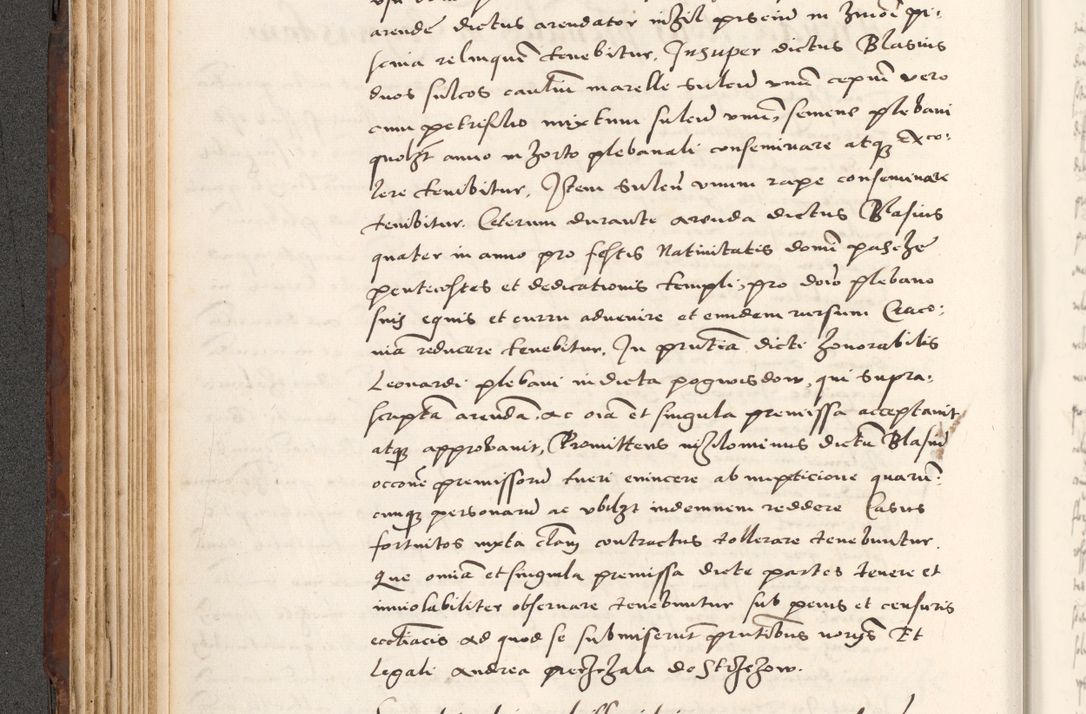 arende dictus arendator nihil presciu in Zimoe pi-
scina relinquere tenebitur. Insuper dictus Blasius
duos sulcos caulium marelle sulcu unum ceparum vero
cum petrisilio mixtum sulcu unum, semine plebani
quolzt anno in horto plebanali conseminare atq exco-
lere tenebitur. Item sulcu unum rape conseminare
tenebitur. Ceterum durante arenda dictus Blasius
quater in anno pro festis Nativitatis domini pasche
penthecostes et dedicationis templi, pro dno plebano
suis equis et curru advenire et eundem rursum Craco-
viam reducere tenebitur. In pntia dicti honorabilis
Leonardi plebani in dicta pogwisdow, qui supra-
scriptam arendam ac oia et singula premissa acceptavit
atq approbavit, Promittens nihilominus dictu Blasiu
occone premissoru tueri evincere ab impeticione quarum-
cunq personaru ac ubilzt indemnem reddere Casus
fortuitos iuxta clam contractus tollerare tenebuntur.
Que omnia et singula premissa dicte partes tenere et
inviolabiliter observare tenebuntur sub penis et censuris
ecclticis ad quod se submiserunt pntibus
Legali Andrea de Strzezow.